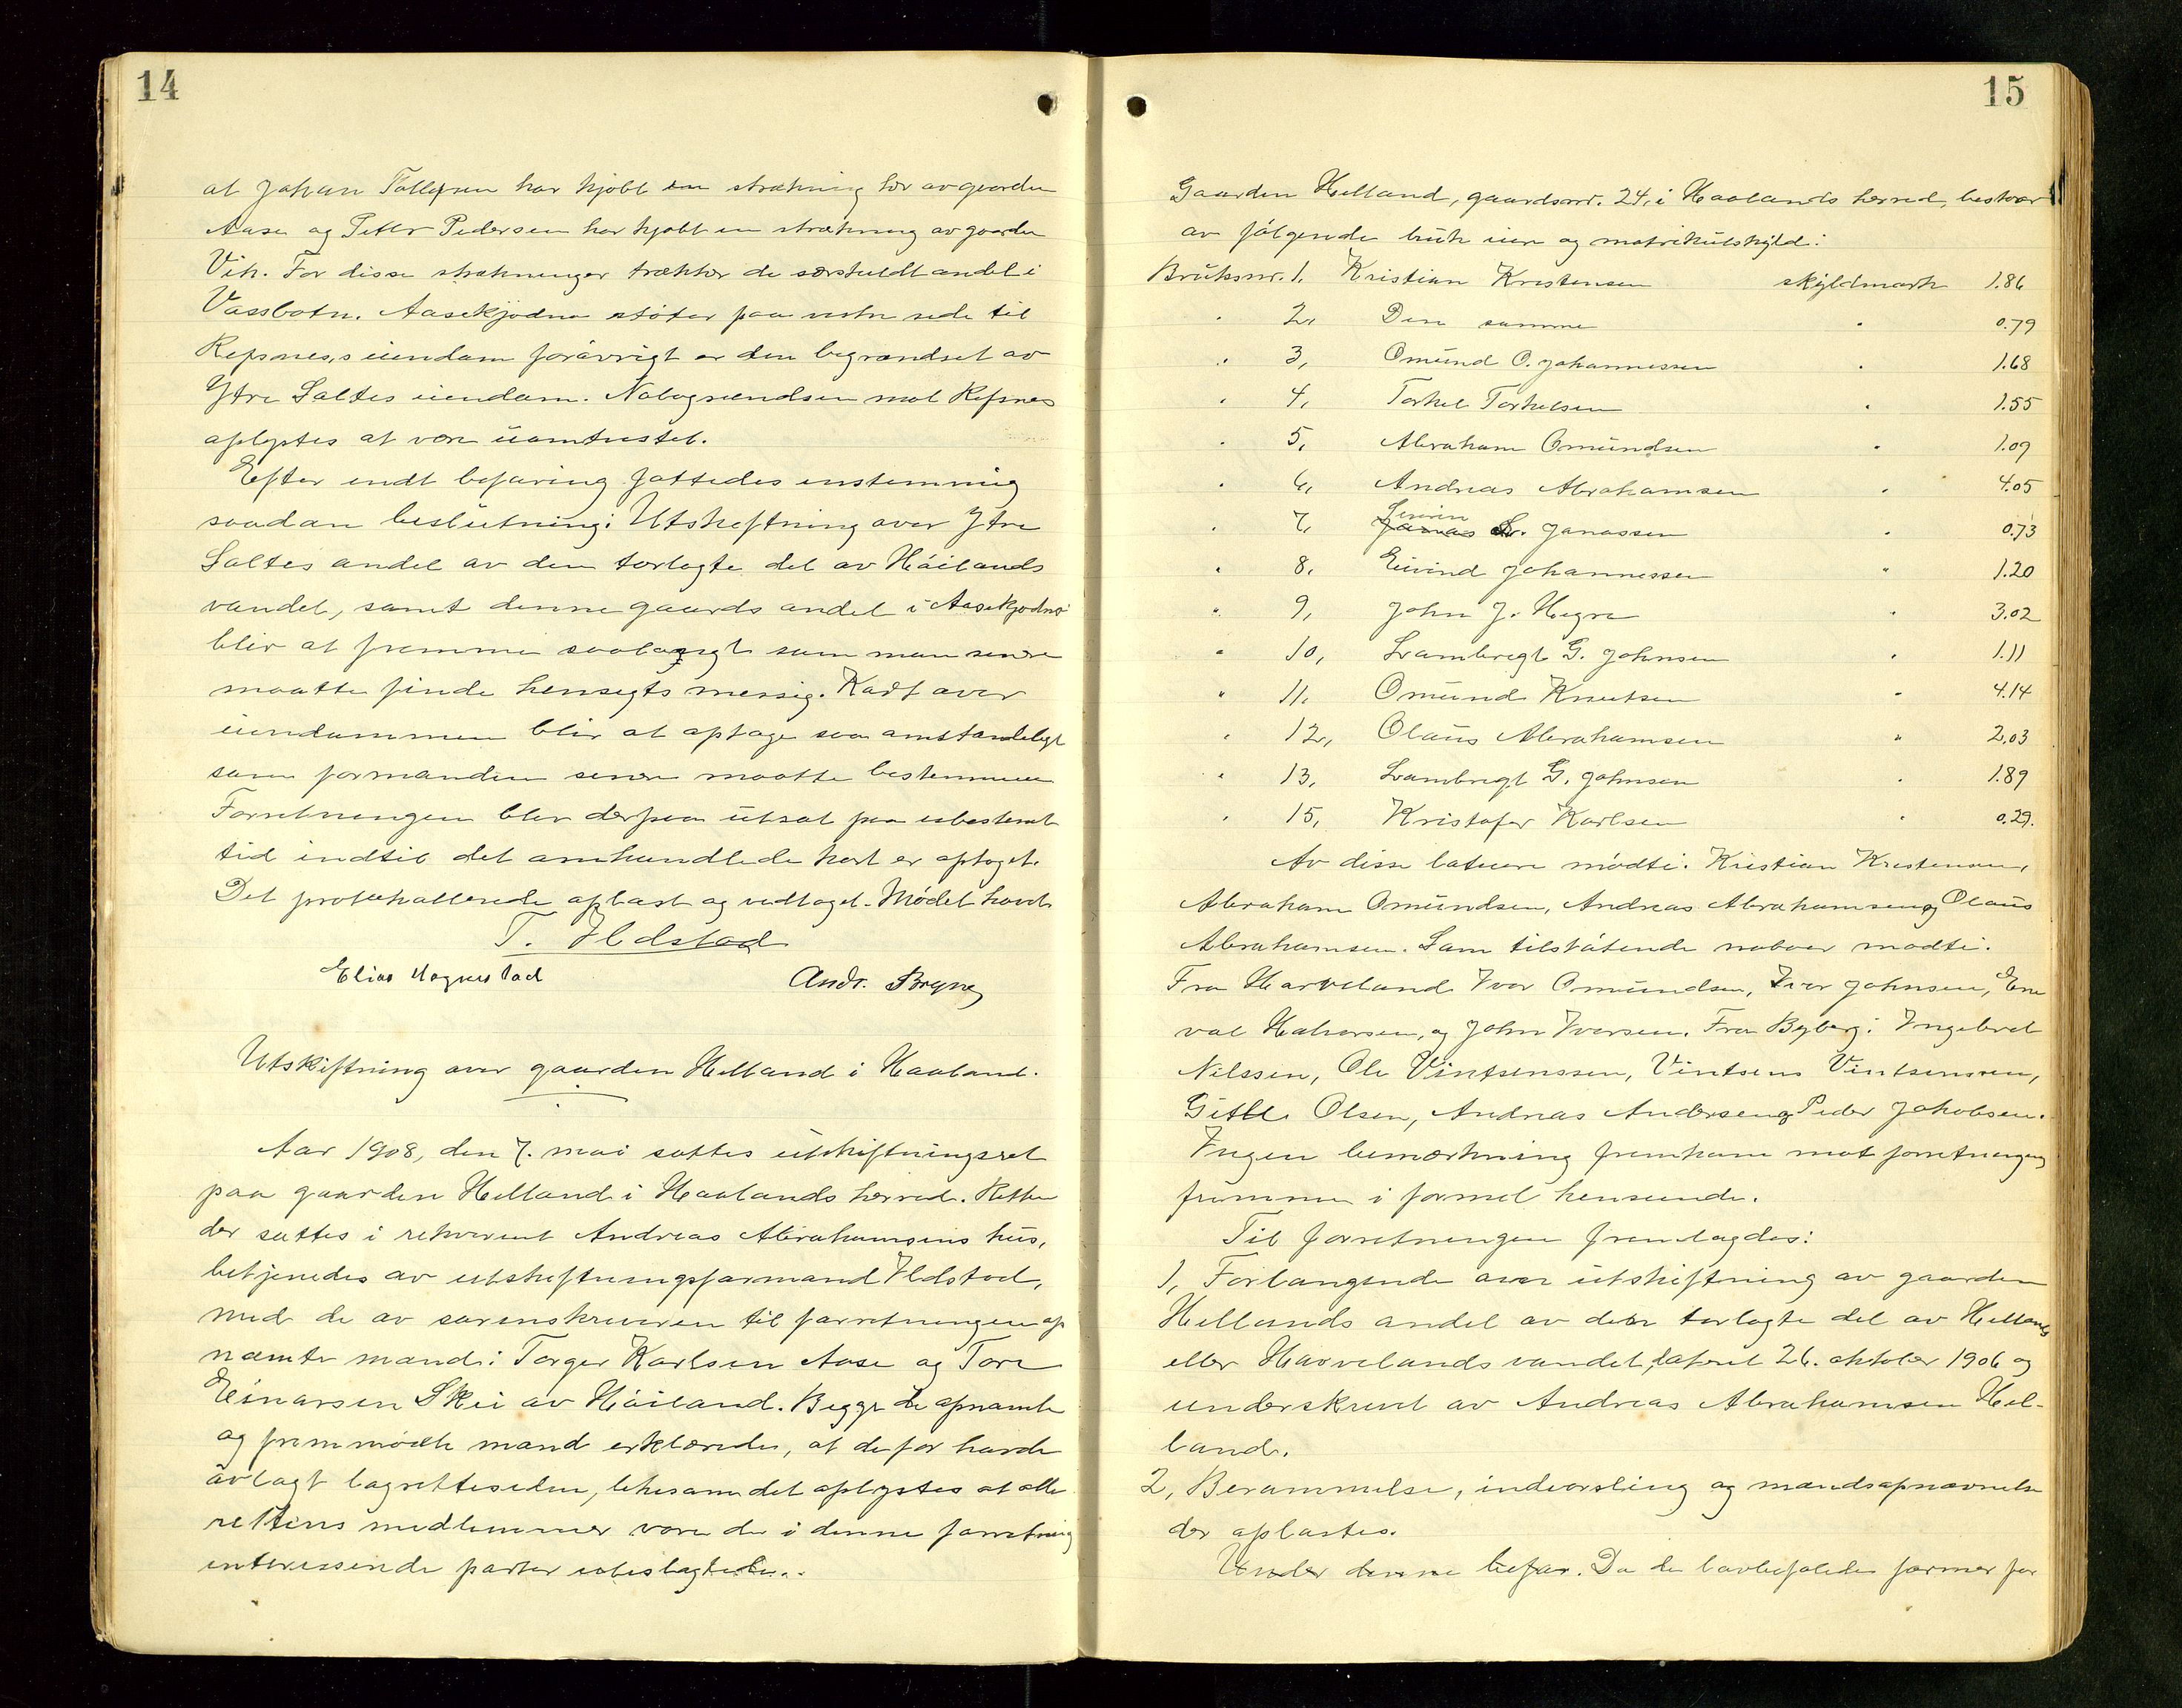 14
at Johan Tollefsen har kjøbt en strækning her av gaarden
Aase og Petter Pedersen har kjøbt en strækning av gaarden
Vik. For disse strækninger trækker de særskildt andel i
Vassbotn. Aasekjødna støter paa vestre side til
Refsnes,s eiendom forøvrigt er den begrændset av
Ytre Saltes eiendom. Nabogrændsen mot Refsnes
oplystes at være uomtvistet.
Efter endt befaring fattedes enstemmig
saadan beslutning: Utskiftning over Ytre
Saltes andel av den tørlagte del av Høilands
vandet, samt denne gaards andel i Aasekjødna
blir at fremme saalangt som man senere
maatte finde hensigtsmessig. Kart over
eiendommen blir at optage saa omstændeligt
som formanden senere maatte bestemme
Forretningen blev derpaa utsat paa ubestemt
tid indtil det omhandlede kart er optaget.
Det protokollerede oplæst og vedtaget. Mødet hævet
T. Ildstad
Elias Hognestad Andr. Bryne
Utskiftning over gaarden Helland i Haaland.
Aar 1908, den 7. mai sattes utskiftningsret
paa gaarden Helland i Haalands herred. Retten
der sattes i rekvirent Andreas Abrahamsens hus,
betjenedes av utskiftningsformand Ildstad,
med de av sorenskriveren til forretningen op
nævnte mænd: Torger Karlsen Aase og Tore
Einarsen Skei av Høiland. Begge de opnævnte
og fremmødte mænd erklærede, at de før havde
avlagt lagretteseden, likesom det oplystes at alle
rettens medlemmer vare de i denne forretning
interessende parter ubeslægtede..
15
Gaarden Helland, gaardsnr. 24, i Haalands herred, bestaar
av følgende bruk eiere og matrikulskyld:
Bruksnr. 1, Kristian Kristensen skyldmark 1.86
" 2, Den samme " 0.79
" 3, Omund O. Johannessen " 1.68
" 4, Torkel Torkelsen " 1.55
" 5, Abraham Omundsen " 1.09
" 6, Andreas Abrahamsen " 4.05
Severin
" 7, Jonas Jonassen " 0.73
" 8, Eivind Johannessen " 1.20
" 9, John J. Hegre " 3.02
" 10, Lambregt G. Johnsen " 1.11
" 11, Omund Knutsen " 4.14
" 12, Olaus Abrahamsen " 2.03
" 13, Lambregt G. Johnsen " 1.89
" 15, Kristofer Karlsen " 0.29.
Av disse lodeiere mødte: Kristian Kristensen,
Abraham Omundsen, Andreas Abrahamsen og Olaus
Abrahamsen. Som tilstøtende naboer mødte:
Fra Harveland Iver Omundsen, Iver Johnsen, Ene
val Halvorsen, og John Iversen. Fra Byberg: Ingebret
Nilssen, Ole Vintsenssen, Vintsens Vintsenssen,
Gitle Olsen, Andreas Andersen og Peder Jakobsen.
Ingen bemærkning fremkom mot forretningens
fremme i formel henseende.
Til forretningen fremlagdes:
1, Forlangende over utskiftning av gaarden
Hellands andel av den tørlagte del av Hellands
eller Harvelands vandet, dateret 26. oktober 1906 og
underskrevet av Andreas Abrahamsen Hel-
land.
2, Berammelse, indvarsling og mandsopnævnelse
der oplæstes.
Under denne befar. Da de lovbefalede former for